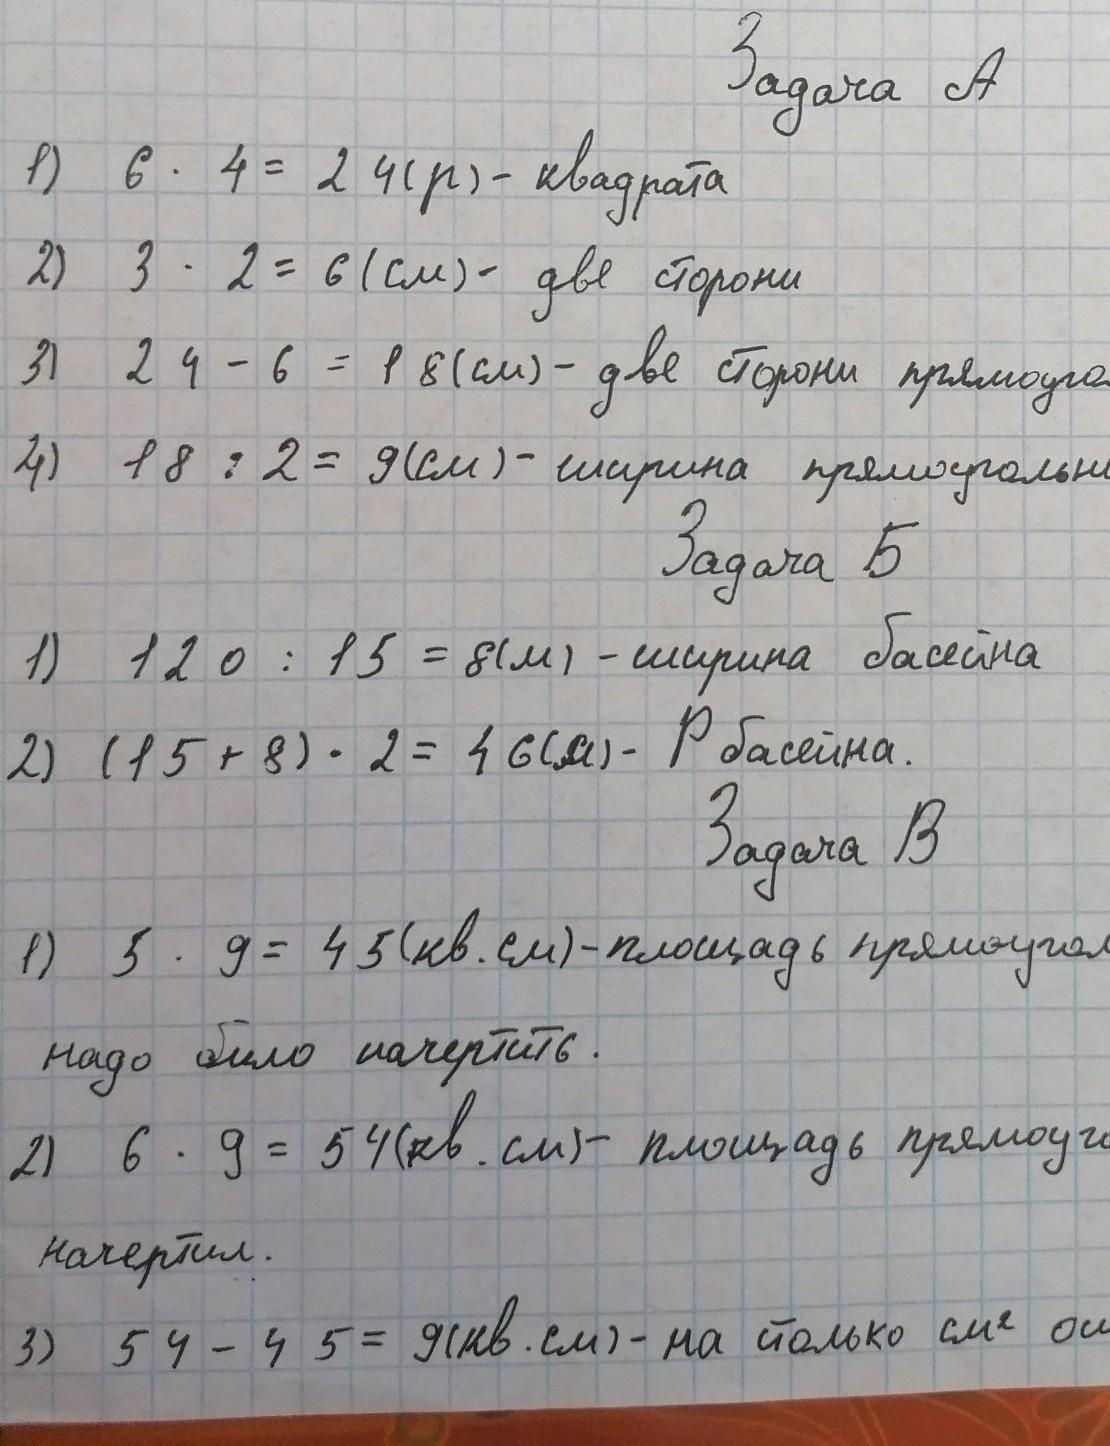 Задача А
1) 6 · 4 = 24(р) - квадрата
2) 3 · 2 = 6(см) - две сторони
3) 24 - 6 = 18(см) - две сторони прямоуго
4) 18 : 2 = 9(см) - ширина прямоугольни
Задача Б
1) 120 : 15 = 8(м) - ширина басейна
2) (15 + 8) · 2 = 46(м) - Р басейна.
Задача В
1) 5 · 9 = 45(кв.см) - площадь прямоугол
надо било начертить.
2) 6 · 9 = 54(кв.см) - площадь прямоуго
начертил.
3) 54 - 45 = 9(кв.см) - на столько см² ош